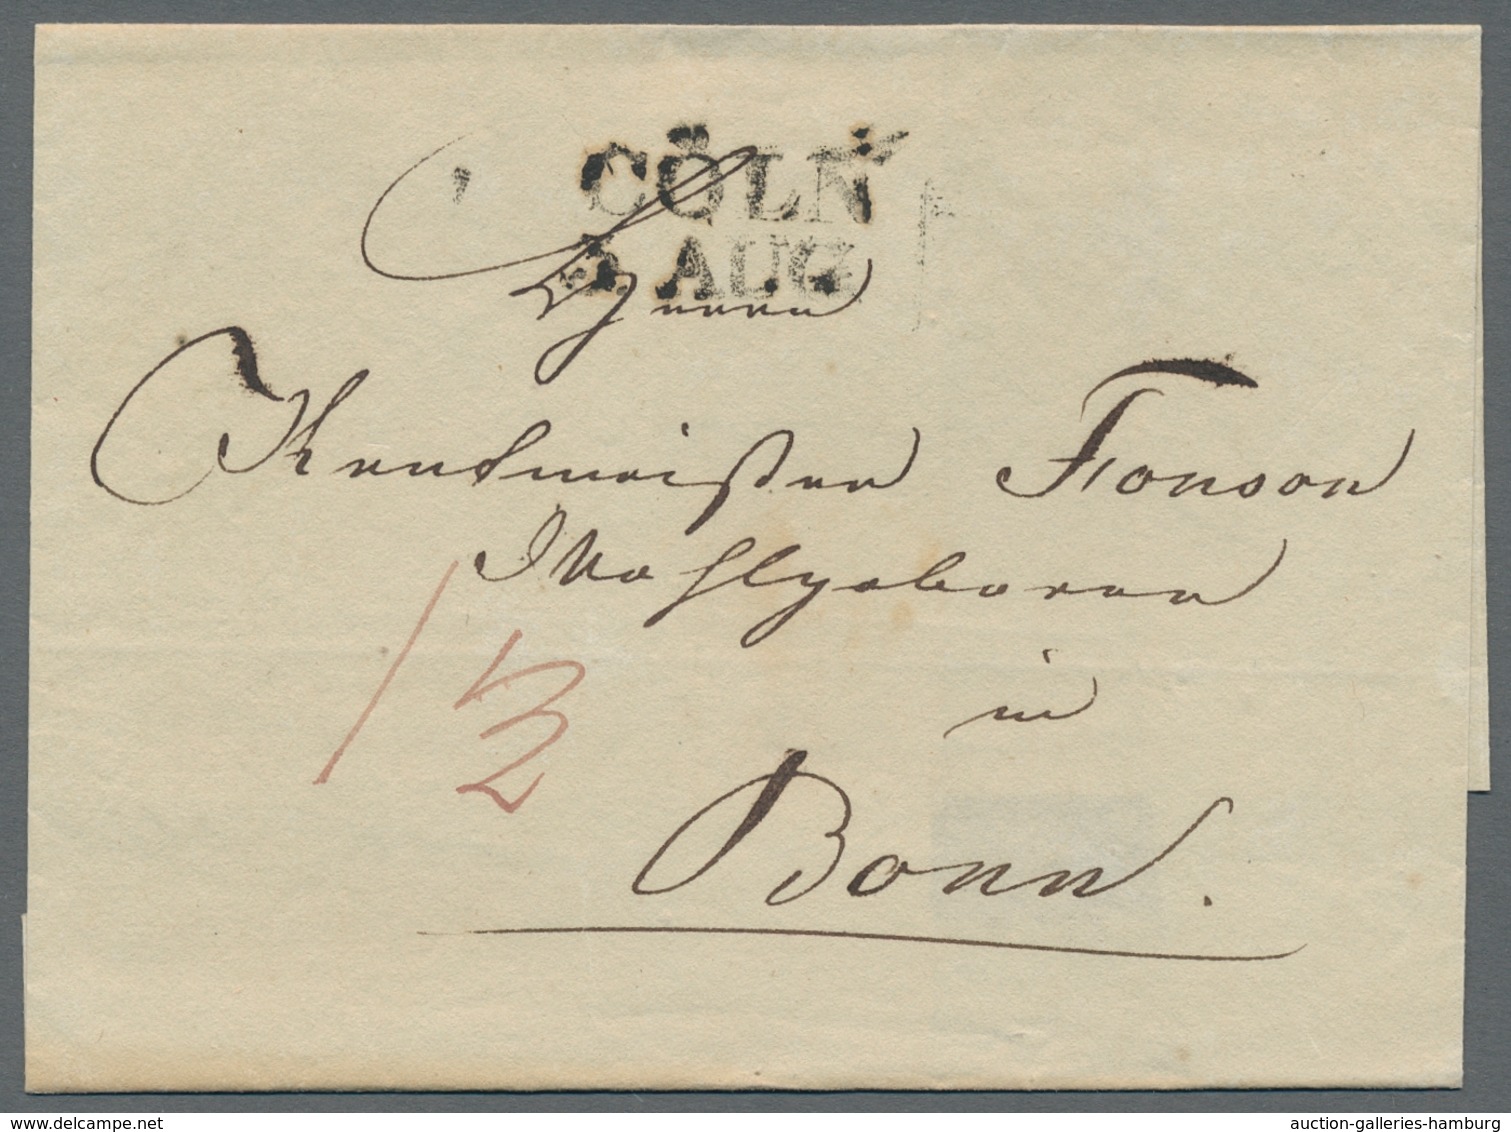 CÖLN
5 AUG
Herrn
Rentmeister Fonson
Wohlgeboren
in
Bonn.
1 1/2
www.delcampe.net
auction-galleries-hamburg